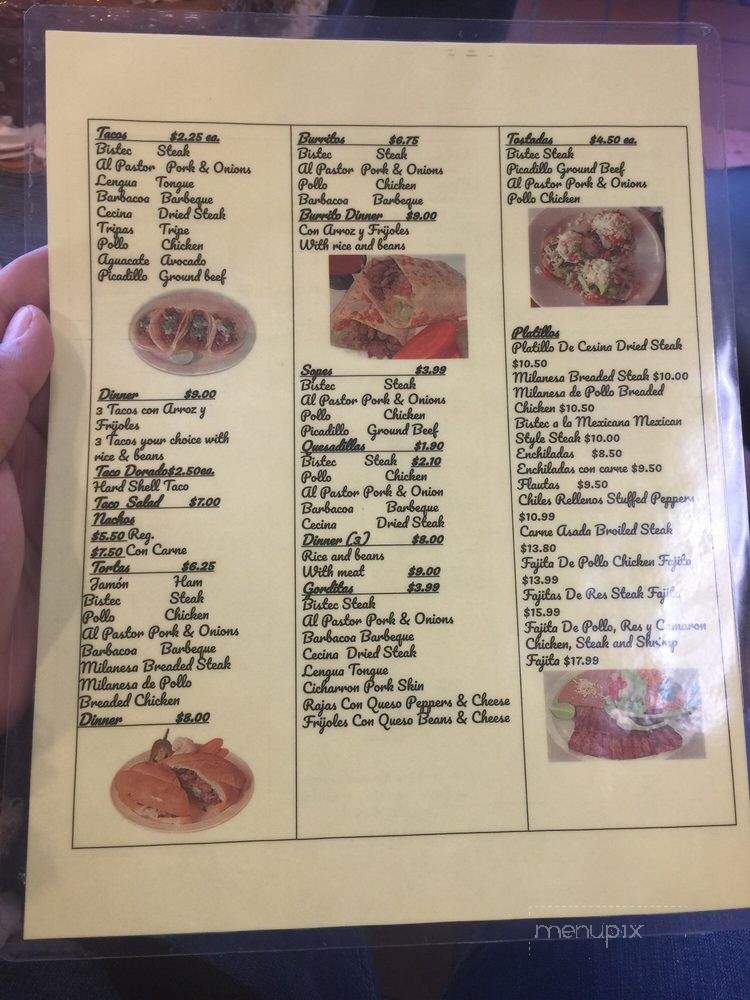 Tacos $2.25 ea.
Bistec Steak
Al Pastor Pork & Onions
Lengua Tongue
Barbacoa Barbeque
Cecina Dried Steak
Tripas Tripe
Pollo Chicken
Aguacate Avocado
Picadillo Ground beef
Dinner $9.00
3 Tacos con Arroz y
Frijoles
3 Tacos your choice with
rice & beans
Taco Dorado $2.50ea.
Hard Shell Taco
Taco Salad $7.00
Nachos
$5.50 Reg.
$7.50 Con Carne
Tortas $6.25
Jamón Ham
Bistec Steak
Pollo Chicken
Al Pastor Pork & Onions
Barbacoa Barbeque
Milanesa Breaded Steak
Milanesa de Pollo
Breaded Chicken
Dinner $8.00
Burritos $6.75
Bistec Steak
Al Pastor Pork & Onions
Pollo Chicken
Barbacoa Barbeque
Burrito Dinner $9.00
Con Arroz y Frijoles
With rice and beans
Sopes $3.99
Bistec Steak
Al Pastor Pork & Onions
Pollo Chicken
Picadillo Ground Beef
Quesadillas $1.90
Bistec Steak $2.10
Pollo Chicken
Al Pastor Pork & Onion
Barbacoa Barbeque
Cecina Dried Steak
Dinner (3) $8.00
Rice and beans
With meat $9.00
Gorditas $3.99
Bistec Steak
Al Pastor Pork & Onions
Barbacoa Barbeque
Cecina Dried Steak
Lengua Tongue
Cicharron Pork Skin
Rajas Con Queso Peppers & Cheese
Frijoles Con Queso Beans & Cheese
Tostadas $4.50 ea.
Bistec Steak
Picadillo Ground Beef
Al Pastor Pork & Onions
Pollo Chicken
Platillos
Platillo De Cesina Dried Steak
$10.50
Milanesa Breaded Steak $10.00
Milanesa de Pollo Breaded
Chicken $10.50
Bistec a la Mexicana Mexican
Style Steak $10.00
Enchiladas $8.50
Enchiladas con carne $9.50
Flautas $9.50
Chiles Rellenos Stuffed Peppers
$10.99
Carne Asada Broiled Steak
$13.80
Fajita De Pollo Chicken Fajita
$13.99
Fajitas De Res Steak Fajita
$15.99
Fajita De Pollo, Res y Camaron
Chicken, Steak and Shrimp
Fajita $17.99
menupix